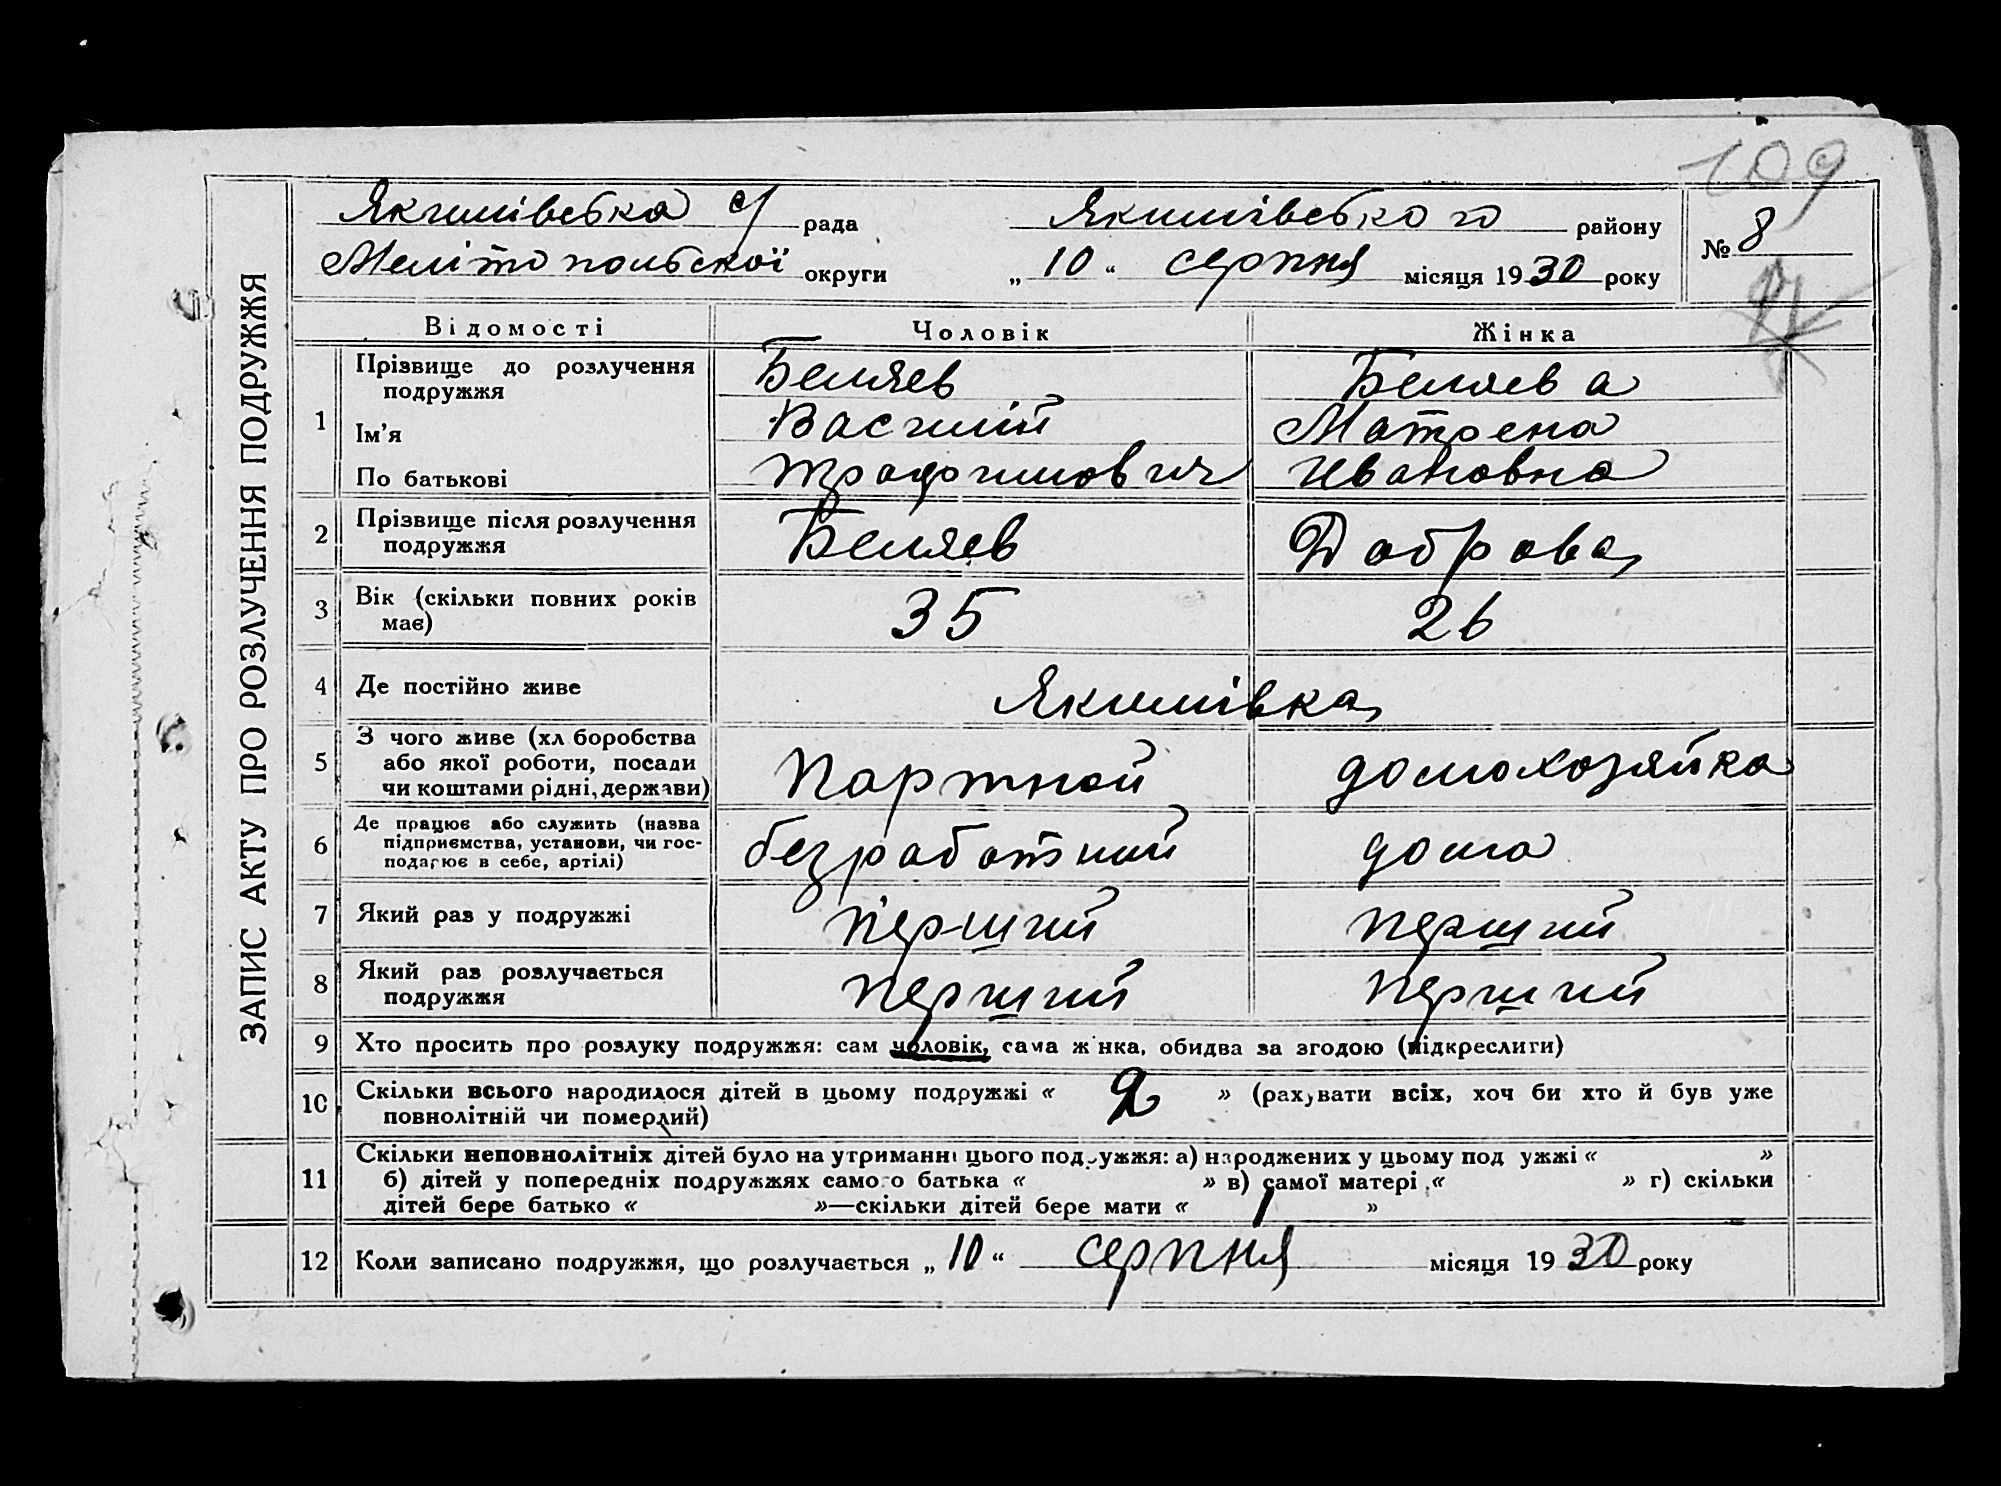 109
Якимівська с/ рада „ Якимівського району № 8
Мелітопольської округи „ 10 “ серпня місяця 1930 року
ЗАПИС АКТУ ПРО РОЗЛУЧЕННЯ ПОДРУЖЖЯ
Відомості Чоловік Жінка
1 Прізвище до розлучення подружжя Беляев Беляева
Ім'я Василій Матрена
По батькові Трафимович Ивановна
2 Прізвище після розлучення
подружжя Беляев Даброва
3 Вік (скільки повних років
має) 35 26
4 Де постійно живе Якимівка
5 З чого живе (хл боробства
або якої роботи, посади
чи коштами рідні, держави) Партной домохозяйка
6 Де працює або служить (назва
підприємства, установи, чи гос-
подарює в себе, артілі) безработний дома
7 Який раз у подружжі перший перший
8 Який раз розлучається
подружжя перший перший
9 Хто просить про розлуку подружжя: сам чоловік, сама жінка, обидва за згодою (підкреслити)
10 Скільки всього народилося дітей в цьому подружжі « 2 » (рахувати всіх, хоч би хто й був уже
повнолітній чи померлий)
11 Скільки неповнолітніх дітей було на утриманні цього подружжя: а) народжених у цьому подружжі « »
б) дітей у попередніх подружжях самого батька « » в) самої матері « » г) скільки
дітей бере батько « »—скільки дітей бере мати « 1 »
12 Коли записано подружжя, що розлучається „ 10 “ серпня місяця 1930 року